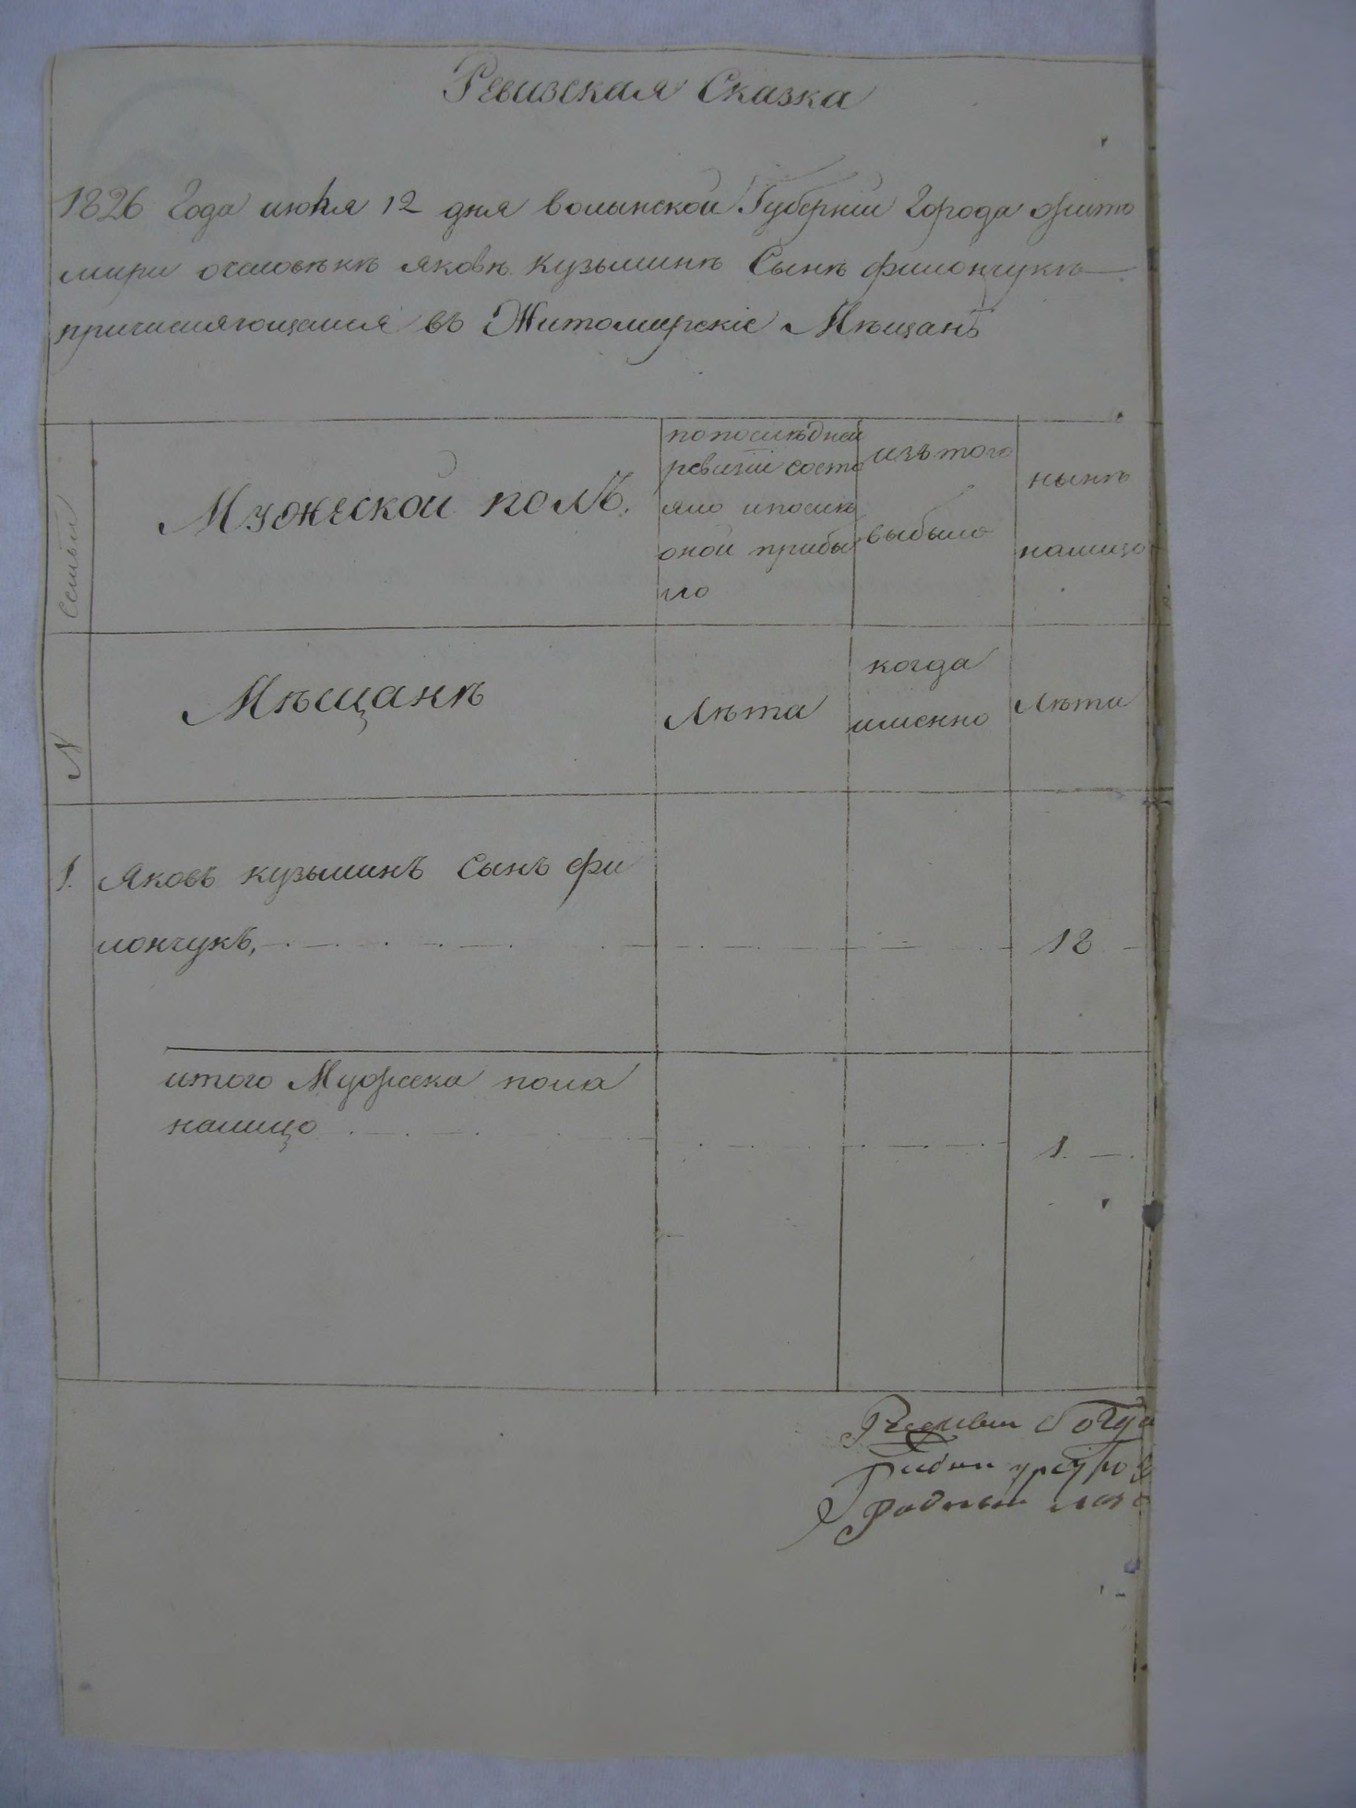 Ревизская Сказка
1826 Года июня 12 дня волынской Губерніи Города жито
мира о человѣкѣ яковѣ кузьминѣ Сынѣ филончукѣ
причисляющемся въ Житомирскіе Мѣщанѣ
Семьи
Мужеской полъ.
по послѣдней
ревизіи состо
яло и послѣ
оной прибы
ло
изъ того
выбыло
нынѣ
налицо
N
Мѣщанѣ
Лѣта
когда
именно
Лѣта
1. Яковъ кузьминъ Сынъ фи
лончукъ, 18
итого Мужеска пола
налицо 1.